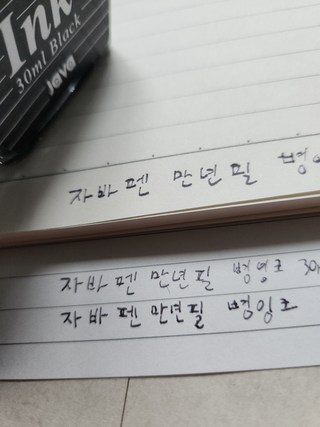 Ink
30ml Black
Java
자바 펜 만년필 병잉
자바 펜 만년필 병잉크 30
자바 펜 만년필 병잉크